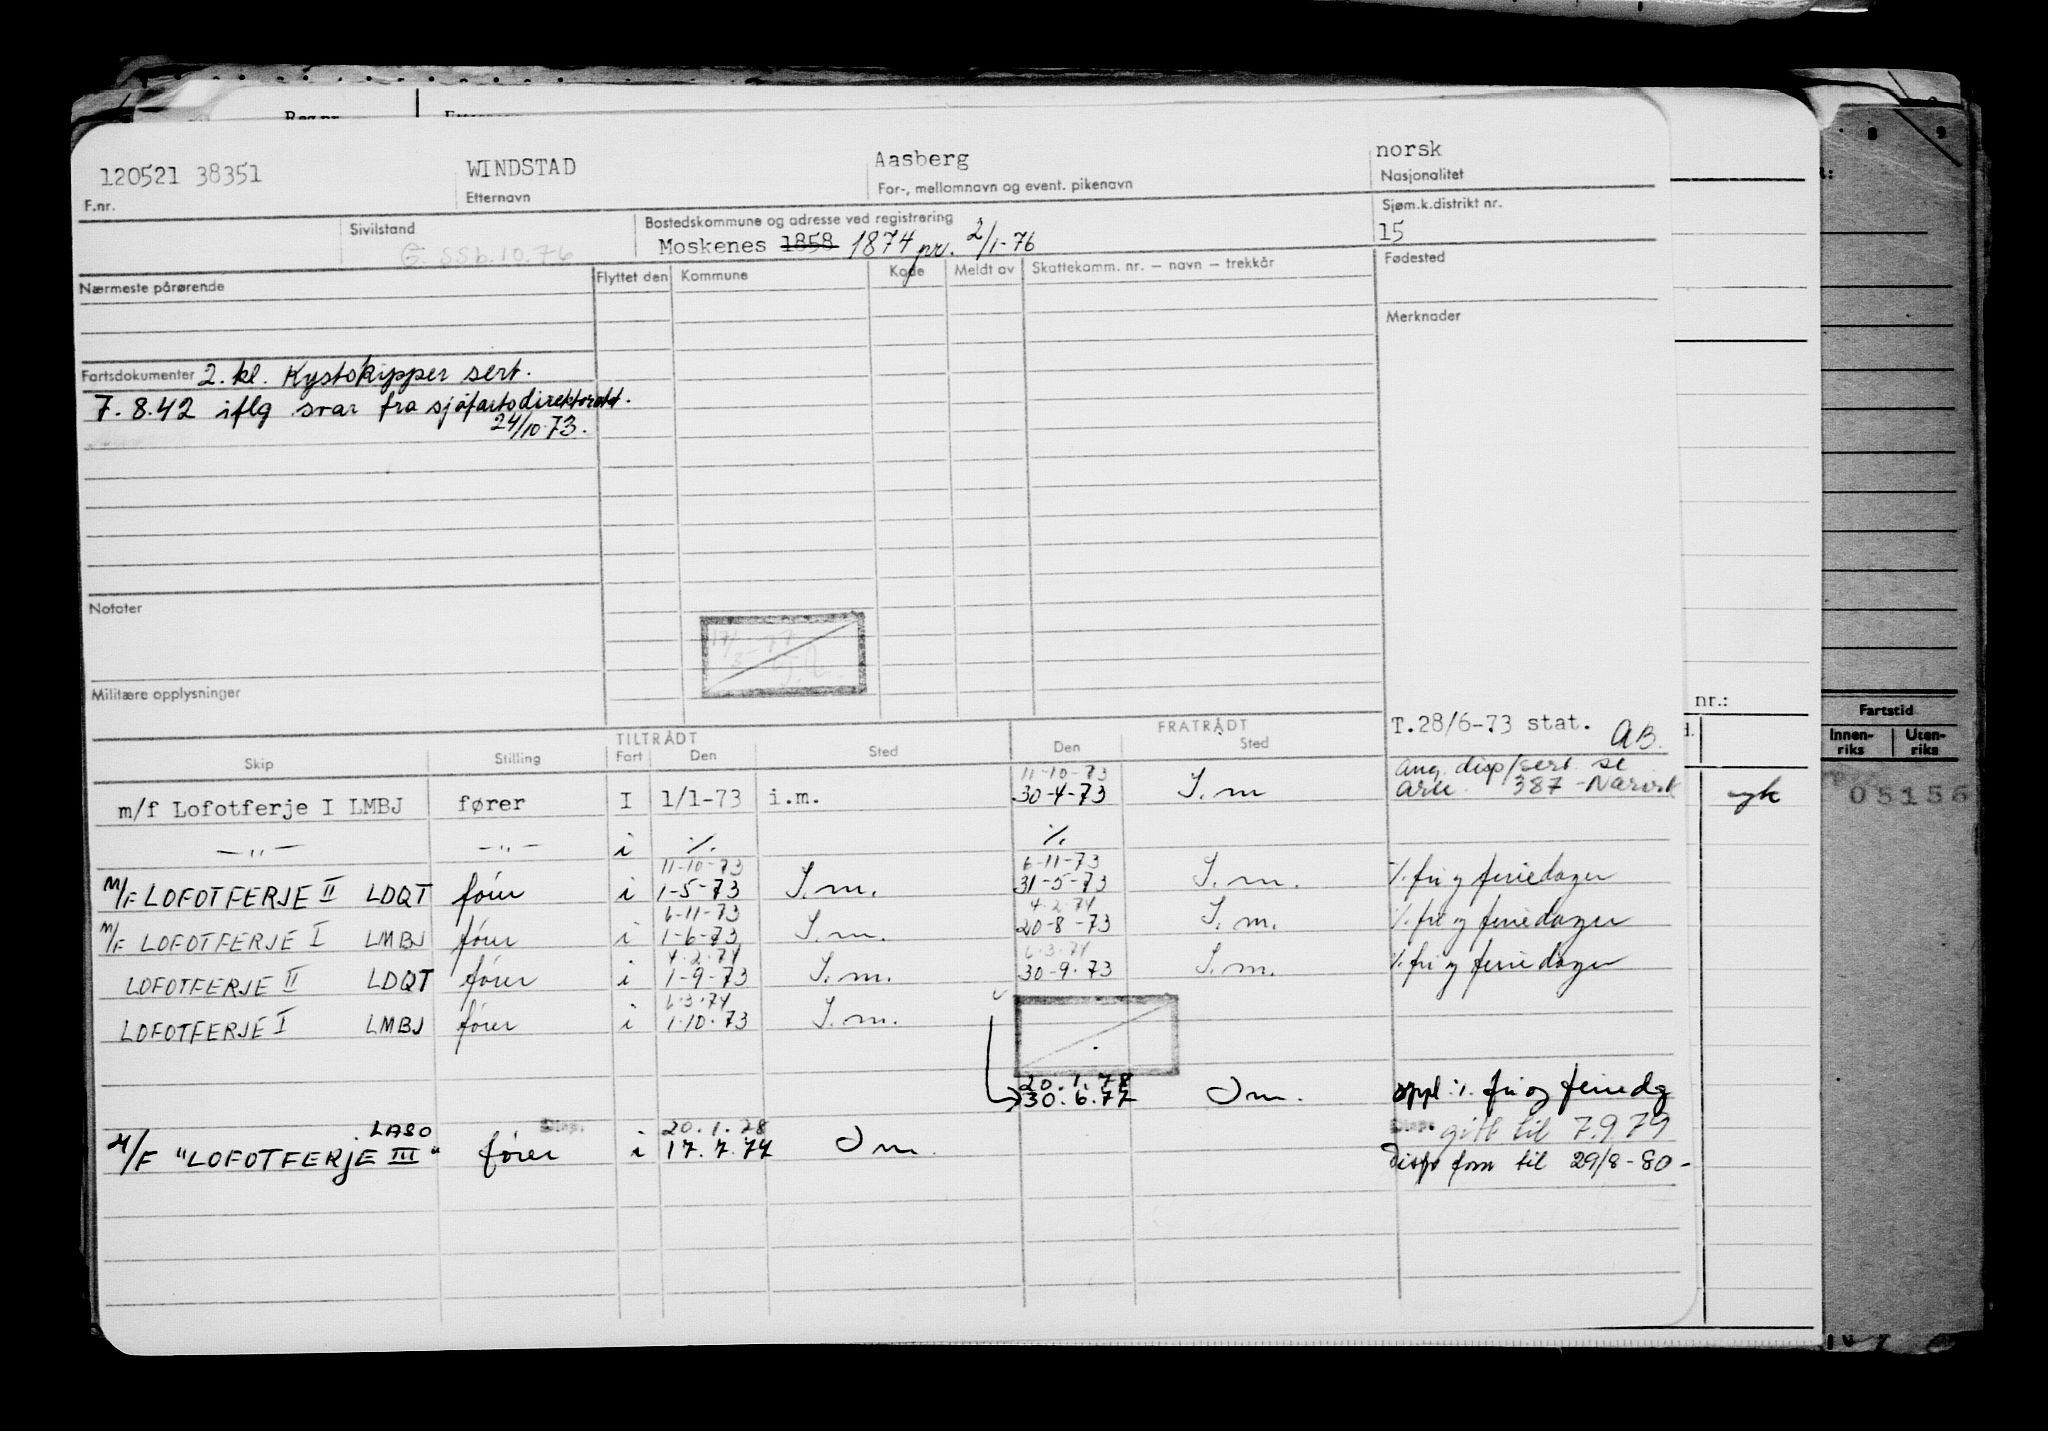 Reg.nr.
120521 38351 WINDSTAD Aasberg norsk
F.nr. Etternavn For-, mellomnavn og event. pikenavn Nasjonalitet
Sivilstand Bostedskommune og adresse ved registrering Sjøm.k.distrikt nr.
G. SSb. 10.76 Moskenes 1858 1874 pr. 2/1-76 15
Nærmeste pårørende Flyttet den Kommune Kode Meldt av Skattekomm. nr. – navn – trekkår Fødested
Merknader
Fartsdokumenter 2. kl. Kystskipper sert.
7.8.42 iflg svar fra sjøfartsdirektoratet.
24/10.73.
Notater
Militære opplysninger
T.28/6-73 stat. AB.
TILTRÅDT FRATRÅDT
Skip Stilling Fart Den Sted Den Sted
ang. disp/sert. se
11-10-73
m/f Lofotferje I LMBJ fører I 1/1-73 i.m. 30-4-73 I.m ark. 387 -Narvik
—〃— —〃— i ./. ./.
11-10-73 6-11-73
M/F LOFOTFERJE II LDQT fører i 1-5-73 I.m. 31-5-73 I.m. ./. fri og feriedager
6-11-73 4.2.74
M/F LOFOTFERJE I LMBJ fører i 1-6-73 I.m. 20-8-73 I.m. ./. fri og feriedager
4.2.74 6.3.74
LOFOTFERJE II LDQT fører i 1-9-73 I.m. 30-9-73 I.m. ./. fri og feriedager
6.3.74
LOFOTFERJE I LMBJ fører i 1-10-73 I.m.
20.1.78
30.6.77 Im. oppl ./. fri og feriedg
Disp. 20.1.78 Disp. gitt til 7.9.79
LASO
M/F "LOFOTFERJE III" fører i 17.7.77 Im. Disp forn til 29/8-80-
nr.:
Fartstid
Innen-riks Uten-riks
05156